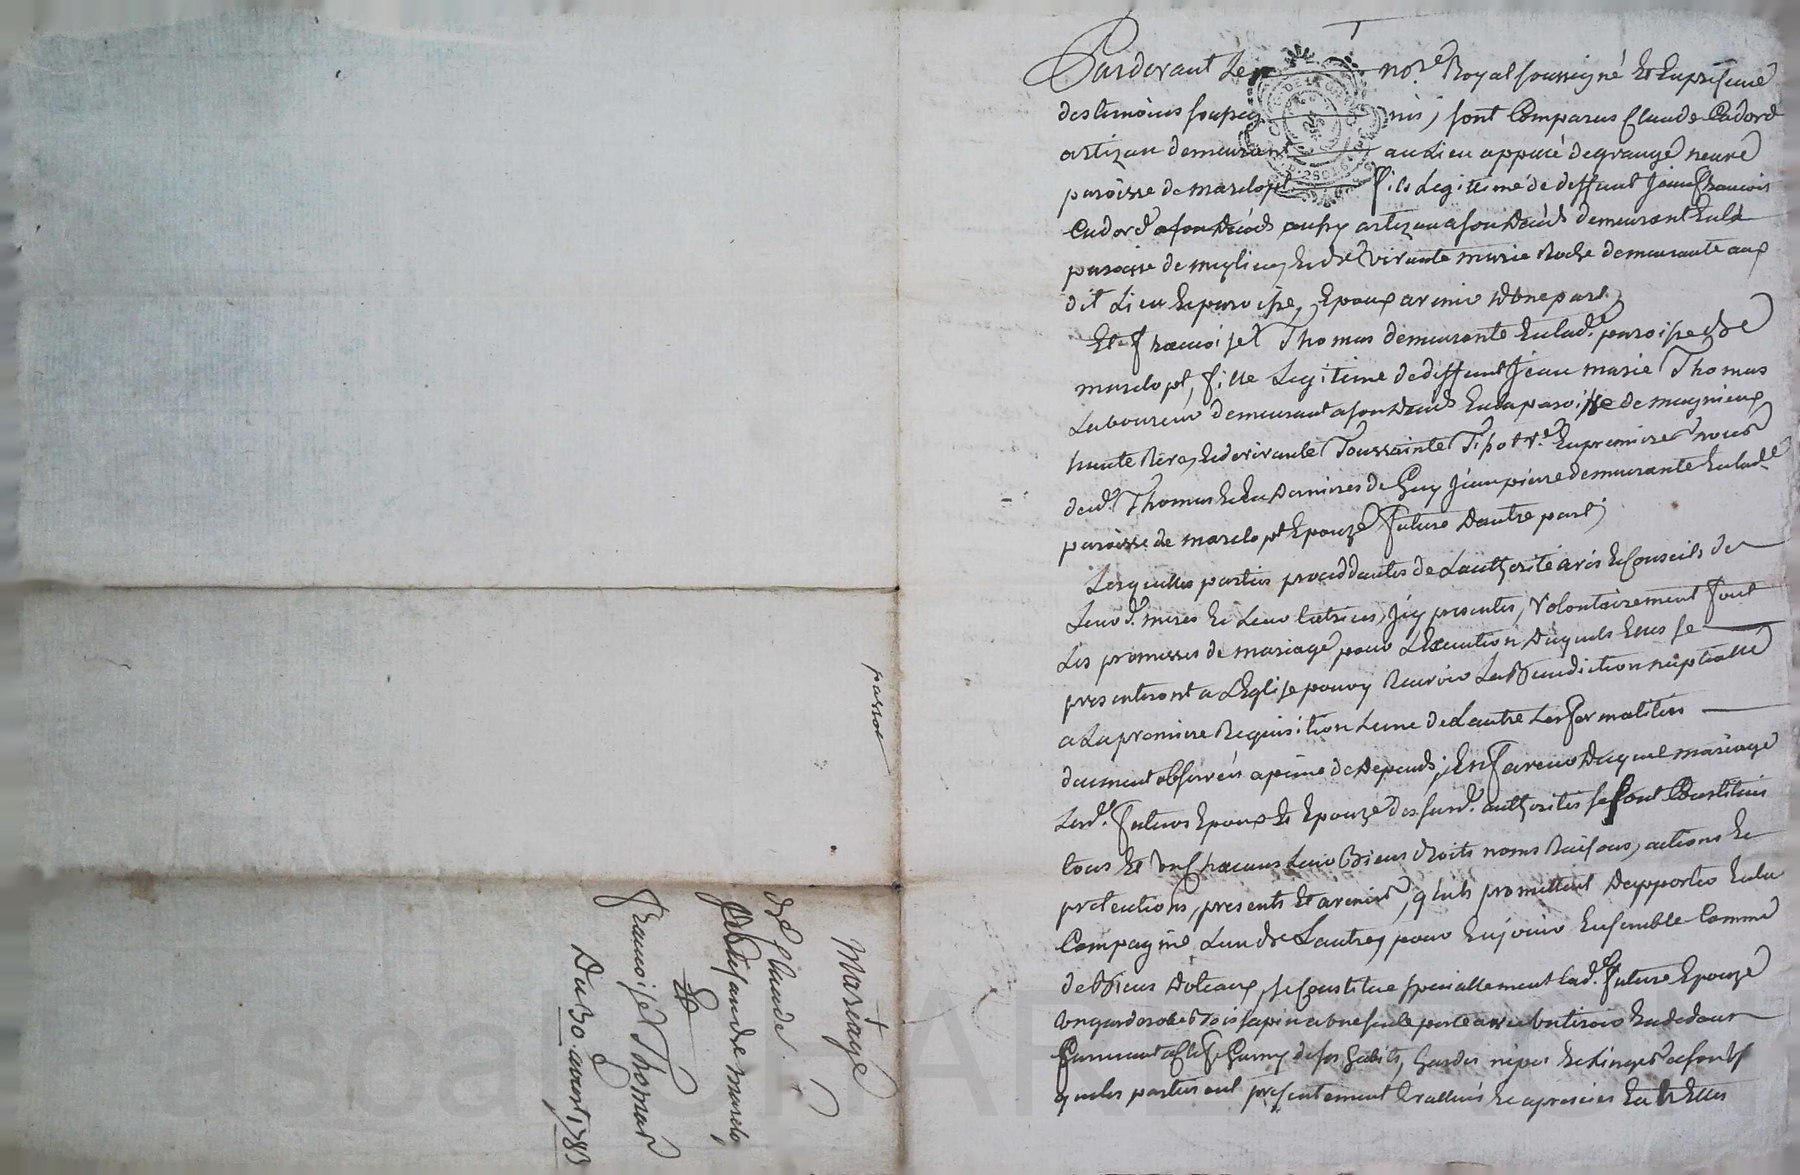 Pardevant Le nore Royal soussigné Et En presence
des temoins soupsig nés, sont Comparus Claude Cadord
artizan demeurant au Lieu appelé de grange neuve
paroisse de marclopt fils Legitime de deffunt Jean francois
Cadord a son Décéds artizan a son Décéds demeurant En la
paroisse de Et de vivante marie Roche demeurante aux
dit Lieu Et paroisse, Epoux avenir D'une part,
Et francoise Thomas demeurante En lad. paroisse de
marclopt, fille Legitime de deffunt Jean marie Thomas
Laboureur demeurant a son Déceds En la paroisse de magnieux
haute Rive, Et de vivante Toussainte En premiere noces
dud. Thomas Et En Dernieres de Guy Jean pierre demeurante En lad.
paroisse de marclopt Epouze future D'autre part,
Lesquelles parties proceddantes de L'authorité avis Et Conseils de
Leurd. meres Et Leur tutrices, Jcy presentes, Volontairement font
Les promesses de mariage, pour L'Execution Duquels Elles se
presenteront a L'Eglise pour y Recevoir La Benediction nuptialle
a La premiere Requisition L'une de L'autre Les formalités
deument observées a peine de Depends; En faveur Duquel mariage
Lesd. futurs Epoux Et Epouze des susd. authorités se sont Constitués
tous Et Un Chacuns Leur Biens droits noms Raisons, actions Et
pretentions, presents Et avenir, quils promettent D'apporter En la
Compagnie L'un de L'autre, pour En jouir Ensemble Comme
de Biens Dotaux, se Constitue speciallement lad. future Epouze
Un garderobe Bois sapin a une seule porte avec Un tiroir En dedans
fermant a Clef Garny de ses habits, hardes nipes Et Linges a
que les parties ont presentement Et apreciés Entr'Elles
passer
Mariage
de Claude
Artisan de marclop
Et
Francoise Thomas
Du 30 avant 1783